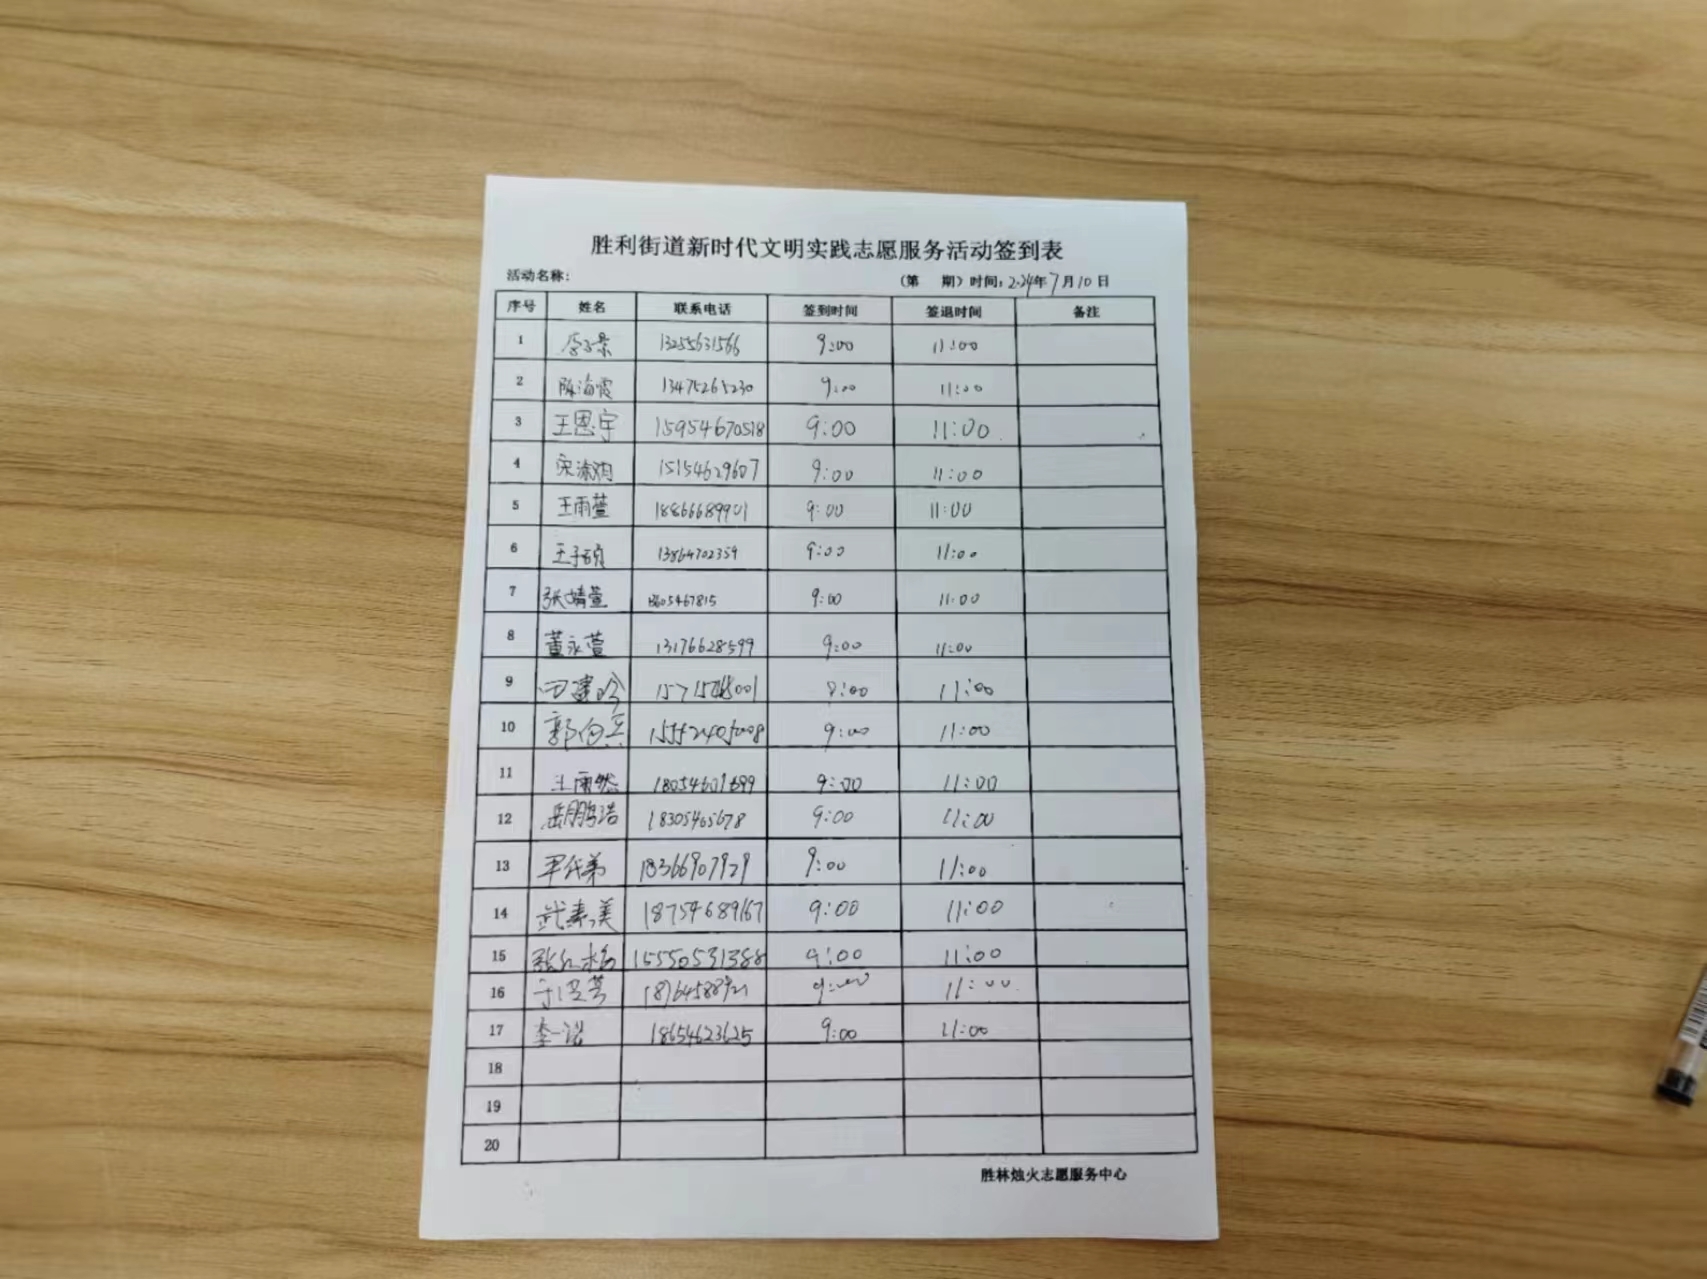 胜利街道新时代文明实践志愿服务活动签到表
活动名称： （第 期）时间：2024年7月10日
序号 姓名 联系电话 签到时间 签退时间 备注
1 李子景 13255631566 9:00 11:00
2 陈海霞 13475265230 9:00 11:00
3 王恩宇 15954670518 9:00 11:00
4 15154629607 9:00 11:00
5 王雨萱 18866689901 9:00 11:00
6 王子硕 13864702359 9:00 11:00
7 张婧萱 9:00 11:00
8 董永萱 13176628599 9:00 11:00
9 9:00 11:00
10 郭向兵 15552405008 9:00 11:00
11 王雨然 9:00 11:00
12 岳鹏浩 18305465678 9:00 11:00
13 18366907929 9:00 11:00
14 武素美 18754689167 9:00 11:00
15 15550531388 9:00 11:00
16 9:00 11:00
17 李一诺 18654623625 9:00 11:00
18
19
20
胜林烛火志愿服务中心